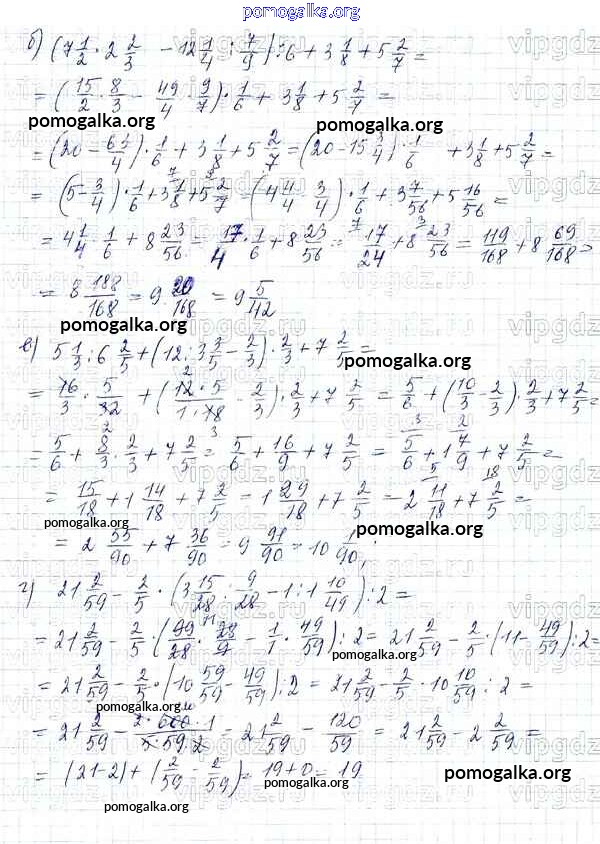 pomogalka.org
б) (7 1/2 · 2 2/3 - 12 1/4 : 7/9) : 6 + 3 1/8 + 5 2/7 =
= (15/2 · 8/3 - 49/4 · 9/7) · 1/6 + 3 1/8 + 5 2/7 =
pomogalka.org pomogalka.org
= (20 - 63/4) · 1/6 + 3 1/8 + 5 2/7 = (20 - 15 3/4) · 1/6 + 3 1/8 + 5 2/7 =
= (5 - 3/4) · 1/6 + 3 1/8 + 5 2/7 = (4 4/4 - 3/4) · 1/6 + 3 7/56 + 5 16/56 =
= 4 1/4 · 1/6 + 8 23/56 = 17/4 · 1/6 + 8 23/56 = 17/24 + 8 23/56 = 119/168 + 8 69/168 =
= 8 188/168 = 9 20/168 = 9 5/42
pomogalka.org
в) 5 1/3 : 6 2/5 + (12 : 3 3/5 - 2/3) · 2/3 + 7 2/5 =
pomogalka.org
= 16/3 · 5/32 + (12 · 5/1 · 18 - 2/3) · 2/3 + 7 2/5 = 5/6 + (10/3 - 2/3) · 2/3 + 7 2/5 =
= 5/6 + 8/3 · 2/3 + 7 2/5 = 5/6 + 16/9 + 7 2/5 = 5/6 + 1 7/9 + 7 2/5 =
= 15/18 + 1 14/18 + 7 2/5 = 1 29/18 + 7 2/5 = 2 11/18 + 7 2/5 =
pomogalka.org pomogalka.org
= 2 55/90 + 7 36/90 = 9 91/90 = 10 1/90;
г) 21 2/59 - 2/5 · (3 15/28 : 9/28 - 1 : 1 10/49) : 2 =
= 21 2/59 - 2/5 · (99/28 · 28/9 - 1/1 · 49/59) : 2 = 21 2/59 - 2/5 · (11 - 49/59) : 2 =
pomogalka.org
= 21 2/59 - 2/5 · (10 59/59 - 49/59) : 2 = 21 2/59 - 2/5 · 10 10/59 : 2 =
pomogalka.org
= 21 2/59 - 2 · 600 · 1/5 · 59 · 2 = 21 2/59 - 120/59 = 21 2/59 - 2 2/59 =
= (21 - 2) + (2/59 - 2/59) = 19 + 0 = 19
pomogalka.org
pomogalka.org